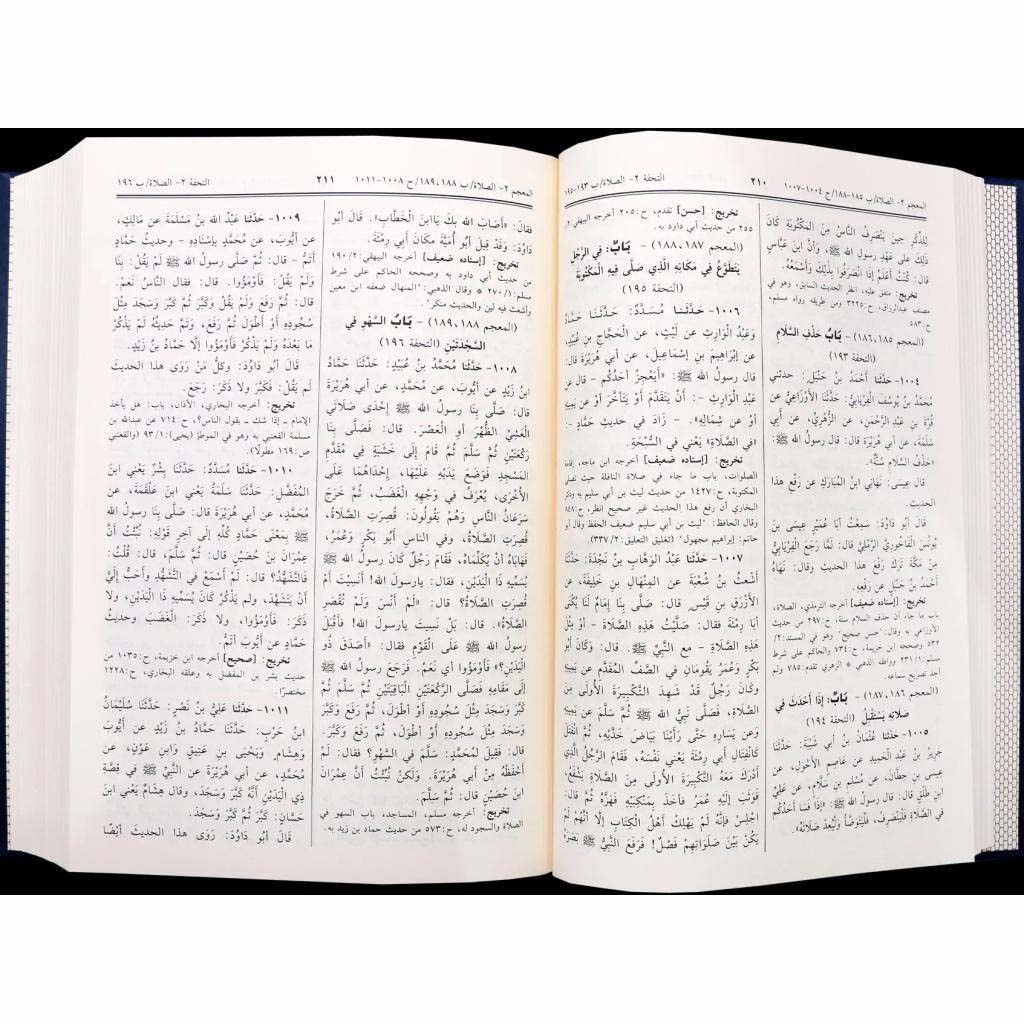 المعجم ٢- الصلاة/ ب ١٨٥-١٨٨/ح ١٠٠٤-١٠٠٧
٢١٠
التحفة ٢- الصلاة/ ب ١٩٣-١٩٥
لِلذِّكْرِ حِينَ يَنْصَرِفُ النَّاسُ مِنَ المَكْتُوبَةِ كَانَ
ذَلِكَ عَلَى عَهْدِ رسولِ الله ﷺ، وَأنَّ ابنَ عَبَّاسٍ
قال: كُنْتُ أعْلَمُ إذَا انْصَرَفُوا بِذَلِكَ وَأسْمَعُهُ.
تخريج: متفق عليه، انظر الحديث السابق، وهو في
مصنف عبدالرزاق، ح: ٣٢٢٥ ومن طريقه رواه مسلم،
ح: ٥٨٣.
(المعجم ١٨٥، ١٨٦) - بَابُ حَذْفِ السَّلَامِ
(التحفة ١٩٣)
١٠٠٤- حَدَّثَنا أَحْمَدُ بنُ حَنْبَلٍ: حدثني
مُحمَّدُ بنُ يُوسُفَ الْفِرْيَابِيُّ: حَدَّثَنَا الأوْزَاعِيُّ عن
قُرَّةَ بنِ عَبْدِ الرَّحْمَنِ، عن الزُّهْرِيِّ، عن أبي
سَلَمَةَ، عن أبي هُرَيْرَةَ قال: قال رسولُ الله ﷺ:
«حَذْفُ السَّلَامِ سُنَّةٌ».
قال عِيسَى: نَهَانِي ابنُ المُبَارَكِ عن رَفْعِ هذا
الحديثِ.
قال أبُو دَاوُدَ: سَمِعْتُ أبَا عُمَيْرٍ عِيسَى بنَ
يُونُسَ الْفَاخُورِيَّ الرَّمْلِيَّ قال: لَمَّا رَجَعَ الْفِرْيَابِيُّ
مِنْ مَكَّةَ تَرَكَ رَفْعَ هذا الحديثِ وقال: نَهَاهُ
أَحْمَدُ بنُ حَنْبَلٍ عن رَفْعِهِ.
تخريج: [إسناده ضعيف] أخرجه الترمذي، الصلاة،
باب ما جاء أن حذف السلام سنة، ح: ٢٩٧ من حديث
الأوزاعي به وقال: "حسن صحيح" وهو في المسند: ٢/
٥٣٢ وصححه ابن خزيمة، ح: ٧٣٤ والحاكم على شرط
مسلم: ١/ ٢٣١ ووافقه الذهبي * الزهري تقدم: ٧٨٥ ولم
أجد تصريح سماعه.
(المعجم ١٨٦، ١٨٧) - بَابٌ: إذَا أَحْدَثَ في
صلاتِهِ يَسْتَقْبِلُ (التحفة ١٩٤)
١٠٠٥- حَدَّثَنا عُثْمَانُ بنُ أبي شَيْبَةَ: حَدَّثَنَا
جَرِيرُ بنُ عَبْدِ الْحَمِيدِ عن عَاصِمٍ الأحْوَلِ، عن
عِيسَى بنِ حِطَّانَ، عن مُسْلِمِ بنِ سَلَّامٍ، عن عَلِيِّ
ابنِ طَلْقٍ قال: قال رسولُ الله ﷺ: «إذَا فَسَا أحَدُكُم
في الصَّلَاةِ فَلْيَنْصَرِفْ، فَلْيَتَوَضَّأْ وَلْيُعِدْ صَلَاتَهُ».
تخريج: [حسن] تقدم، ح: ٢٠٥ أخرجه البيهقي: ٢/
٢٥٥ من حديث أبي داود به.
(المعجم ١٨٧، ١٨٨) - بَابٌ: في الرَّجُلِ
يَتَطَوَّعُ في مَكَانِهِ الَّذِي صَلَّى فِيهِ المَكْتُوبَةَ
(التحفة ١٩٥)
١٠٠٦- حَدَّثَنا مُسَدَّدٌ: حَدَّثَنَا حَمَّادٌ
وَعَبْدُ الْوَارِثِ عن لَيْثٍ، عن الْحَجَّاجِ بنِ عُبَيْدٍ،
عن إبْرَاهِيمَ بنِ إسْمَاعِيلَ، عن أبي هُرَيْرَةَ قال:
قال رسولُ الله ﷺ: «أيَعْجِزُ أحَدُكُم - قال عن
عَبْدِ الْوَارِثِ -: أنْ يَتَقَدَّمَ أوْ يَتَأخَّرَ أوْ عن يَمِينِهِ
أوْ عن شِمَالِهِ». - زَادَ في حديثِ حَمَّادٍ -:
«في الصَّلَاةِ» يَعْنِي في السُّبْحَةِ.
تخريج: [إسناده ضعيف] أخرجه ابن ماجه، إقامة
الصلوات، باب ما جاء في صلاة النافلة حيث تصلى
المكتوبة، ح: ١٤٢٧ من حديث ليث بن أبي سليم به وذكر
البخاري أن رفع هذا الحديث غير صحيح انظر، ح: ٨٤٨
وقال الحافظ: "ليث بن أبي سليم ضعيف الحفظ وقال أبو
حاتم: إبراهيم مجهول" (تغليق التعليق: ٢/ ٣٣٧).
١٠٠٧- حَدَّثَنا عَبْدُ الوَهَّابِ بنُ نَجْدَةَ: حَدَّثَنَا
أَشْعَثُ بنُ شُعْبَةَ عن المِنْهَالِ بنِ خَلِيفَةَ، عن
الأزْرَقِ بنِ قَيْسٍ قال: صَلَّى بِنَا إمَامٌ لَنَا يُكْنَى
أبَا رِمْثَةَ فقال: صَلَّيْتُ هَذِهِ الصَّلَاةَ - أوْ مِثْلَ
هَذِهِ الصَّلَاةِ - مع النَّبيِّ ﷺ. قال: وكَانَ أبُو
بَكْرٍ وَعُمَرُ يَقُومَانِ في الصَّفِّ المُقَدَّمِ عن يَمِينِهِ
وَكَانَ رَجُلٌ قَدْ شَهِدَ التَّكْبِيرَةَ الأُولَى مِنَ
الصَّلَاةِ، فَصَلَّى نَبِيُّ الله ﷺ ثُمَّ سَلَّمَ عن يَمِينِهِ
وَعن يَسَارِهِ حتَّى رَأَيْنَا بَيَاضَ خَدَّيْهِ، ثُمَّ انْفَتَلَ
كَانْفِتَالِ أبي رِمْثَةَ يَعْنِي نَفْسَهُ، فَقَامَ الرَّجُلُ الَّذِي
أدْرَكَ مَعَهُ التَّكْبِيرَةَ الأُولَى مِنَ الصَّلَاةِ يَشْفَعُ،
فَوَثَبَ إلَيْهِ عُمَرُ فَأخَذَ بِمَنْكِبَيْهِ فَهَزَّهُ ثُمَّ قال:
اجْلِسْ فإنَّهُ لَمْ يَهْلِكْ أهْلُ الْكِتَابِ إلَّا أنَّهُمْ لَمْ
يَكُنْ بَيْنَ صَلَوَاتِهِمْ فَصْلٌ! فَرَفَعَ النَّبيُّ ﷺ بَصَرَهُ
المعجم ٢- الصلاة/ ب ١٨٨، ١٨٩/ ح ١٠٠٨-١٠١١
٢١١
التحفة ٢- الصلاة/ ب ١٩٦
فقالَ: «أَصَابَ الله بِكَ يَاابنَ الْخَطَّابِ». قال أبُو
دَاوُدَ: وَقَدْ قِيلَ أبُو أُمَيَّةَ مكَانَ أبي رِمْثَةَ.
تخريج: [إسناده ضعيف] أخرجه البيهقي: ٢/ ١٩٠
من حديث أبي داود به وصححه الحاكم على شرط
مسلم: ١/ ٢٧٠ * وقال الذهبي: "المنهال ضعفه ابن معين
وأشعث فيه لين والحديث منكر".
(المعجم ١٨٨، ١٨٩) - بَابُ السَّهْوِ في
السَّجْدَتَيْنِ (التحفة ١٩٦)
١٠٠٨- حَدَّثَنا مُحَمَّدُ بنُ عُبَيْدٍ: حَدَّثَنَا حَمَّادُ
ابنُ زَيْدٍ عن أيُّوبَ، عن مُحَمَّدٍ، عن أبي هُرَيْرَةَ
قال: صَلَّى بِنَا رسولُ الله ﷺ إحْدَى صَلَاتَيِ
الْعَشِيِّ الظُّهْرَ أوِ الْعَصْرَ. قال: فَصَلَّى بِنَا
رَكْعَتَيْنِ ثُمَّ سَلَّمَ ثُمَّ قَامَ إلَى خَشَبَةٍ في مُقَدَّمِ
المَسْجِدِ فَوَضَعَ يَدَيْهِ عَلَيْهَا، إحْدَاهُمَا عَلَى
الأُخْرَى، يُعْرَفُ في وَجْهِهِ الْغَضَبُ، ثُمَّ خَرَجَ
سَرَعَانُ النَّاسِ وَهُمْ يَقُولُونَ: قُصِرَتِ الصَّلَاةُ،
قُصِرَتِ الصَّلَاةُ، وفي الناسِ أبُو بَكْرٍ وَعُمَرُ،
فَهَابَاهُ أنْ يُكَلِّمَاهُ، فَقَامَ رَجُلٌ كَانَ رسولُ الله ﷺ
يُسَمِّيهِ ذَا الْيَدَيْنِ، فقال: يارسولَ الله! أنَسِيتَ أمْ
قُصِرَتِ الصَّلَاةُ؟ قال: «لَمْ أنْسَ وَلَمْ تُقْصَرِ
الصَّلَاةُ». قال: بَلْ نَسِيتَ يارسولَ الله! فأقْبَلَ
رسولُ الله ﷺ عَلَى الْقَوْمِ فقال: «أصَدَقَ ذُو
الْيَدَيْنِ؟» فَأوْمَؤُوا أي نَعَمْ. فَرَجَعَ رسولُ الله ﷺ
إلَى مَقَامِهِ فَصَلَّى الرَّكْعَتَيْنِ الْبَاقِيَتَيْنِ ثُمَّ سَلَّمَ ثُمَّ
كَبَّرَ وَسَجَدَ مِثْلَ سُجُودِهِ أوْ أطْوَلَ، ثُمَّ رَفَعَ وَكَبَّرَ
ثُمَّ كَبَّرَ وَسَجَدَ مِثْلَ سُجُودِهِ أوْ أطْوَلَ، ثُمَّ رَفَعَ وَكَبَّرَ.
قال: فَقِيلَ لِمُحَمَّدٍ: سَلَّمَ في السَّهْوِ؟ فقال: لَمْ
أحْفَظْهُ مِنْ أبي هُرَيْرَةَ. وَلَكِنْ نُبِّئْتُ أنَّ عِمْرَانَ
ابنَ حُصَيْنٍ قال: ثُمَّ سَلَّمَ.
تخريج: أخرجه مسلم، المساجد، باب السهو في
الصلاة والسجود له، ح: ٥٧٣ من حديث حماد بن زيد به.
١٠٠٩- حَدَّثَنا عَبْدُ الله بنُ مَسْلَمَةَ عن مَالِكٍ،
عن أيُّوبَ، عن مُحَمَّدٍ بإسْنَادِهِ - وحديثُ حَمَّادٍ
أتَمُّ - قال: ثُمَّ صَلَّى رسولُ الله ﷺ لَمْ يَقُلْ: بِنَا
وَلَمْ يَقُلْ: فَأوْمَؤُوا. قال: فقال النَّاسُ نَعَمْ.
قال: ثُمَّ رَفَعَ وَلَمْ يَقُلْ وَكَبَّرَ ثُمَّ كَبَّرَ وَسَجَدَ مِثْلَ
سُجُودِهِ أوْ أطْوَلَ ثُمَّ رَفَعَ، وَتَمَّ حَدِيثُهُ لَمْ يَذْكُرْ
مَا بَعْدَهُ وَلَمْ يَذْكُرْ فَأوْمَؤُوا إلَّا حَمَّادُ بنُ زَيْدٍ.
قال أبُو دَاوُدَ: وكلُّ مَنْ رَوَى هذا الحديثَ
لَمْ يَقُلْ: فَكَبَّرَ وَلا ذَكَرَ: رَجَعَ.
تخريج: أخرجه البخاري، الأذان، باب: هل يأخذ
الإمام - إذا شك - بقول الناس؟، ح: ٧١٤ عن عبدالله بن
مسلمة القعنبي به وهو في الموطأ (يحيى): ١/ ٩٣ (والقعنبي
ص: ١٦٩ مطولًا).
١٠١٠- حَدَّثَنا مُسَدَّدٌ: حَدَّثَنَا بِشْرٌ يَعْنِي ابنَ
المُفَضَّلِ: حَدَّثَنَا سَلَمَةُ يَعْنِي ابنَ عَلْقَمَةَ، عن
مُحَمَّدٍ، عن أبي هُرَيْرَةَ قال: صَلَّى بِنَا رسولُ الله
ﷺ بِمَعْنَى حَمَّادٍ كُلِّهِ إلَى آخِرِ قَوْلِهِ: نُبِّئْتُ أنَّ
عِمْرَانَ بنَ حُصَيْنٍ قال: ثُمَّ سَلَّمَ، قال: قُلْتُ:
فَالتَّشَهُّدُ؟ قال: لَمْ أسْمَعْ في التَّشَهُّدِ وَأحَبُّ إلَيَّ
أنْ يَتَشَهَّدَ، وَلم يَذْكُرْ كَانَ يُسَمِّيهِ ذَا الْيَدَيْنِ، وَلا
ذَكَرَ: فَأوْمَؤُوا، ولا ذَكَرَ: الْغَضَبَ وَحديثُ
حَمَّادٍ عن أيُّوبَ أتَمُّ.
تخريج: [صحيح] أخرجه ابن خزيمة، ح: ١٠٣٥ من
حديث بشر بن المفضل به وعلقه البخاري، ح: ١٢٢٨
مختصرًا.
١٠١١- حَدَّثَنا عَلِيُّ بنُ نَصْرٍ: حَدَّثَنَا سُلَيْمَانُ
ابنُ حَرْبٍ: حَدَّثَنَا حَمَّادُ بنُ زَيْدٍ عن أيُّوبَ
وَهِشَامٍ وَيَحْيَى بنِ عَتِيقٍ وَابنِ عَوْنٍ، عن
مُحَمَّدٍ، عن أبي هُرَيْرَةَ عن النَّبيِّ ﷺ في قِصَّةِ
ذِي الْيَدَيْنِ أنَّهُ كَبَّرَ وَسَجَدَ، وقال هِشَامٌ يَعْنِي ابنَ
حَسَّانَ: كَبَّرَ ثُمَّ كَبَّرَ وَسَجَدَ.
قَالَ أبُو دَاوُدَ: رَوَى هذا الحديثَ أيْضًا